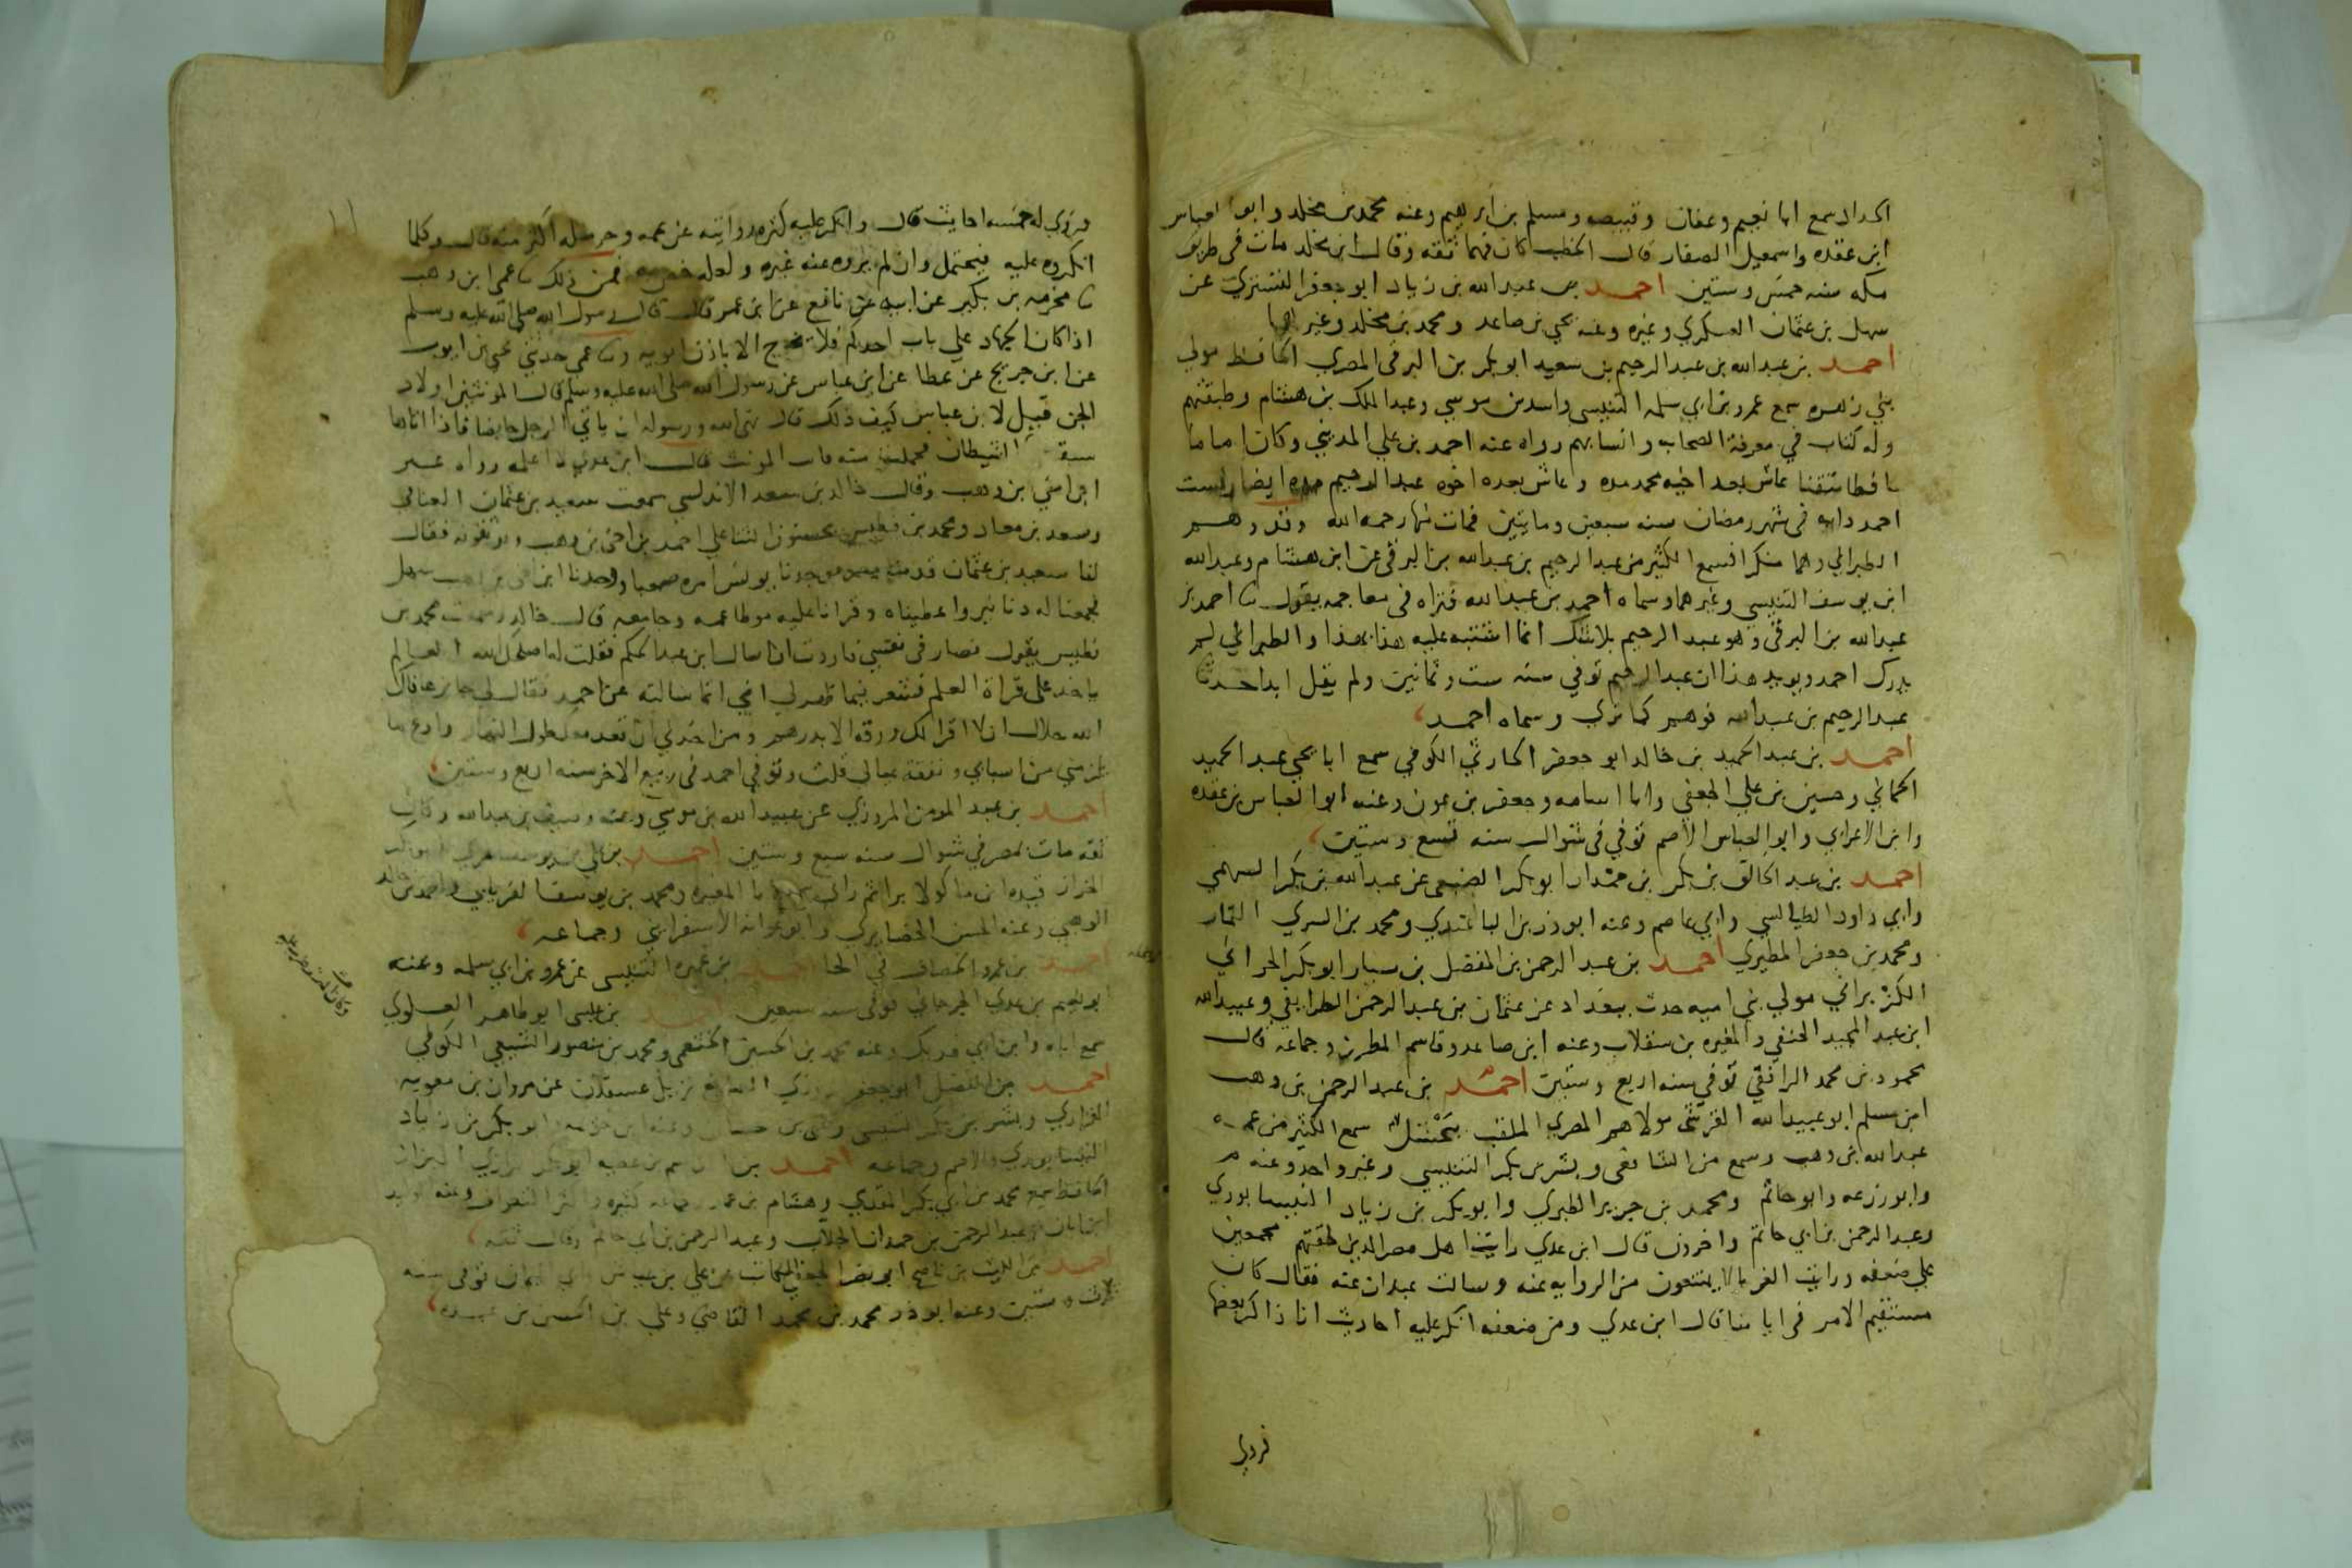 الحداد سمع ابا نعيم وعفان وقبيصه ومسلم بن ابرهيم وعنه محمد بن مخلد وابو العباس
ابن عقده واسمعيل الصفار قال الخطيب كان فهما ثقه وقال ابن مخلد مات في طريق
مكه سنه خمس وستين احمد بن عبد الله بن زياد ابو جعفر التستري عن
سهل بن عثمان العسكري وغيره وعنه يحي بن صاعد ومحمد بن مخلد وغيرهما
احمد بن عبد الله بن عبد الرحيم بن سعيد ابو بكر بن البرقي المصري الحافظ مولي
بني زهره سمع عمرو بن ابي سلمه التنيسي واسد بن موسي وعبد الملك بن هشام وطبقتهم
وله كتاب في معرفة الصحابه وانسابهم رواه عنه احمد بن علي المديني وكان اماما
حافظا متقنا عاش بعد اخيه محمد مده وعاش بعده اخوه عبد الرحيم مده ايضا رفست
احمد دابه في شهر رمضان سنه سبعين ومايتين فمات منها رحمه الله وقد وهم
الطبراني وهما منكرا فسمع الكثير من عبد الرحيم بن عبد الله بن البرقي عن ابن هشام وعبد الله
ابن يوسف التنيسي وغيرهما وسماه احمد بن عبد الله فتراه في معاجمه يقول ثنا احمد بن
عبد الله بن البرقي وهو عبد الرحيم بلا شك انما اشتبه عليه هذا بهذا والطبراني لم
يدرك احمد ويويد هذا ان عبد الرحيم توفي سنه ست وثمانين ولم يقل ابدا حدثنا
عبد الرحيم بن عبد الله فوهم كما تري وسماه احمد
احمد بن عبد الحميد بن خالد ابو جعفر الحارثي الكوفي سمع ابا يحي عبد الحميد
الحماني وحسين بن علي الجعفي وابا اسامه وجعفر بن عون وعنه ابو العباس بن عقده
وابن الاعرابي وابو العباس الاصم توفي في شوال سنه تسع وستين
احمد بن عبد الخالق بن بكر ابو بكر الضبعي عن عبد الله بن بكر السهمي
وابي داود الطيالسي وابي عاصم وعنه ابو ذر بن الباغندي ومحمد بن السري التمار
ومحمد بن جعفر المطيري احمد بن عبد الرحمن بن المفضل بن سيار ابو بكر الحراني
الكزبراني مولي بني اميه حدث ببغداد عن عثمان بن عبد الرحمن الطرايفي وعبيد الله
ابن عبد المجيد الحنفي والمغيره بن سقلاب وعنه ابن صاعد وقاسم المطرز وجماعه قال
محمود بن محمد الرافقي توفي سنه اربع وستين احمد بن عبد الرحمن بن وهب
ابن مسلم ابو عبيد الله القرشي مولاهم المصري الملقب بحشل سمع الكثير من عمه
عبد الله ابن وهب وسمع من الشافعي وبشر بن بكر التنيسي وغير واحد وعنه م
وابو زرعه وابو حاتم ومحمد بن جرير الطبري وابو بكر بن زياد النيسابوري
وعبد الرحمن بن ابي حاتم واخرون قال ابن عدي رايت اهل مصر الذين لحقتهم مجمعين
علي ضعفه ورايت الغربا لا يمتنعون من الروايه عنه وسالت عبدان عنه فقال كان
مستقيم الامر في ايامنا قال ابن عدي ومن ضعفه انكر عليه احاديث انا ذاكر بعضها
فروي
وروي له خمسه احاديث قال وانكر عليه كثره روايته عن عمه وحرمله اكثر منه قال وكلما
انكروه عليه فيحتمل وان لم يروه عنه غيره ولعله خصه به فمن ذلك ثنا عمي ابن وهب
ثنا مخرمه بن بكير عن ابيه عن نافع عن ابن عمر قال قال رسول الله صلى الله عليه وسلم
اذا كان الجهاد علي باب احدكم فلا يخرج الا باذن ابويه وثنا عمي حدثني يحي بن ايوب
عن ابن جريج عن عطا عن ابن عباس عن رسول الله صلى الله عليه وسلم قال المونثين اولاد
الجن قيل لابن عباس كيف ذلك قال نهي الله ورسوله ان ياتي الرجل حايضا فاذا اتاها
سبقه الشيطان فحملت منه فات المونث قال ابن عدي لا اعلمه رواه غير
ابن اخي بن وهب وقال خالد بن سعد الاندلسي سمعت سعيد بن عثمان العناقي
وسعد بن معاد ومحمد بن فطيس يحسنون الثنا علي احمد بن اخي بن وهب ويوثقونه فقال
لنا سعيد بن عثمان قدمنا مصر فوجدنا يونس امره صعبا ووجدنا ابن اخي بن وهب سهل
فجمعنا له دنانير واعطيناه وقرانا عليه موطا عمه وجامعه قال خالد وسمعت محمد بن
فطيس يقول فصار في نفسي فاردت ان اسال ابن عبد الحكم فقلت له اصلحك الله العالم
ياخذ علي قراة العلم فشعر فيما ظهر لي اني انما سالته عن احمد فقال لي جايز عافاك
الله حلال ان لا اقرا لك ورقه الا بدرهم ومن اخذني ان اقعد معك طول النهار وادع ما
يلزمني من اسبابي ونفقة عيالي قلت وتوفي احمد في ربيع الاخر سنه اربع وستين
احمد بن عبد المومن المروزي عن عبيد الله بن موسي وعنه وكان
ثقه مات بمصر في شوال سنه سبع وستين احمد بن علي بن يوسف
الخراز قيده ابن ماكولا برا ثم زاي سمع ابا المغيره ومحمد بن يوسف الفريابي واحمد بن خالد
الوهبي وعنه الحسن الحضايري وابو عوانه الاسفرايني وجماعه
احمد بن عمرو الخصاف في الخا احمد بن عميره التنيسي عن عمرو بن ابي سلمه وعنه
ابو نعيم بن عدي الجرجاني توفي سنه سبعين احمد بن عيسي ابو طاهر العلوي
سمع اباه وابن ابي فديك وعنه محمد بن الحسين الخثعمي ومحمد بن منصور الشيعي الكوفي
احمد بن الفضل ابو جعفر الصايغ نزيل عسقلان عن مروان بن معويه
الفزاري وبشر بن بكر التنيسي ويحي بن حسان وعنه ابن خزيمه وابو بكر بن زياد
النيسابوري والاصم وجماعه احمد بن القاسم بن عطيه ابو بكر الرازي البزاز
الحافظ سمع محمد بن ابي بكر المقدمي وهشام بن عمار وجماعه كثيره واكثر التطواف وعنه الوليد
ابن ابان وعبد الرحمن بن حمدان الجلاب وعبد الرحمن بن ابي حاتم وقال ثقه
احمد بن الليث بن ناصح ابو نصر عن علي بن توفي سنه
ثلاث وستين وعنه ابو ذر محمد بن محمد القاضي وعلي بن الحسن بن عبده